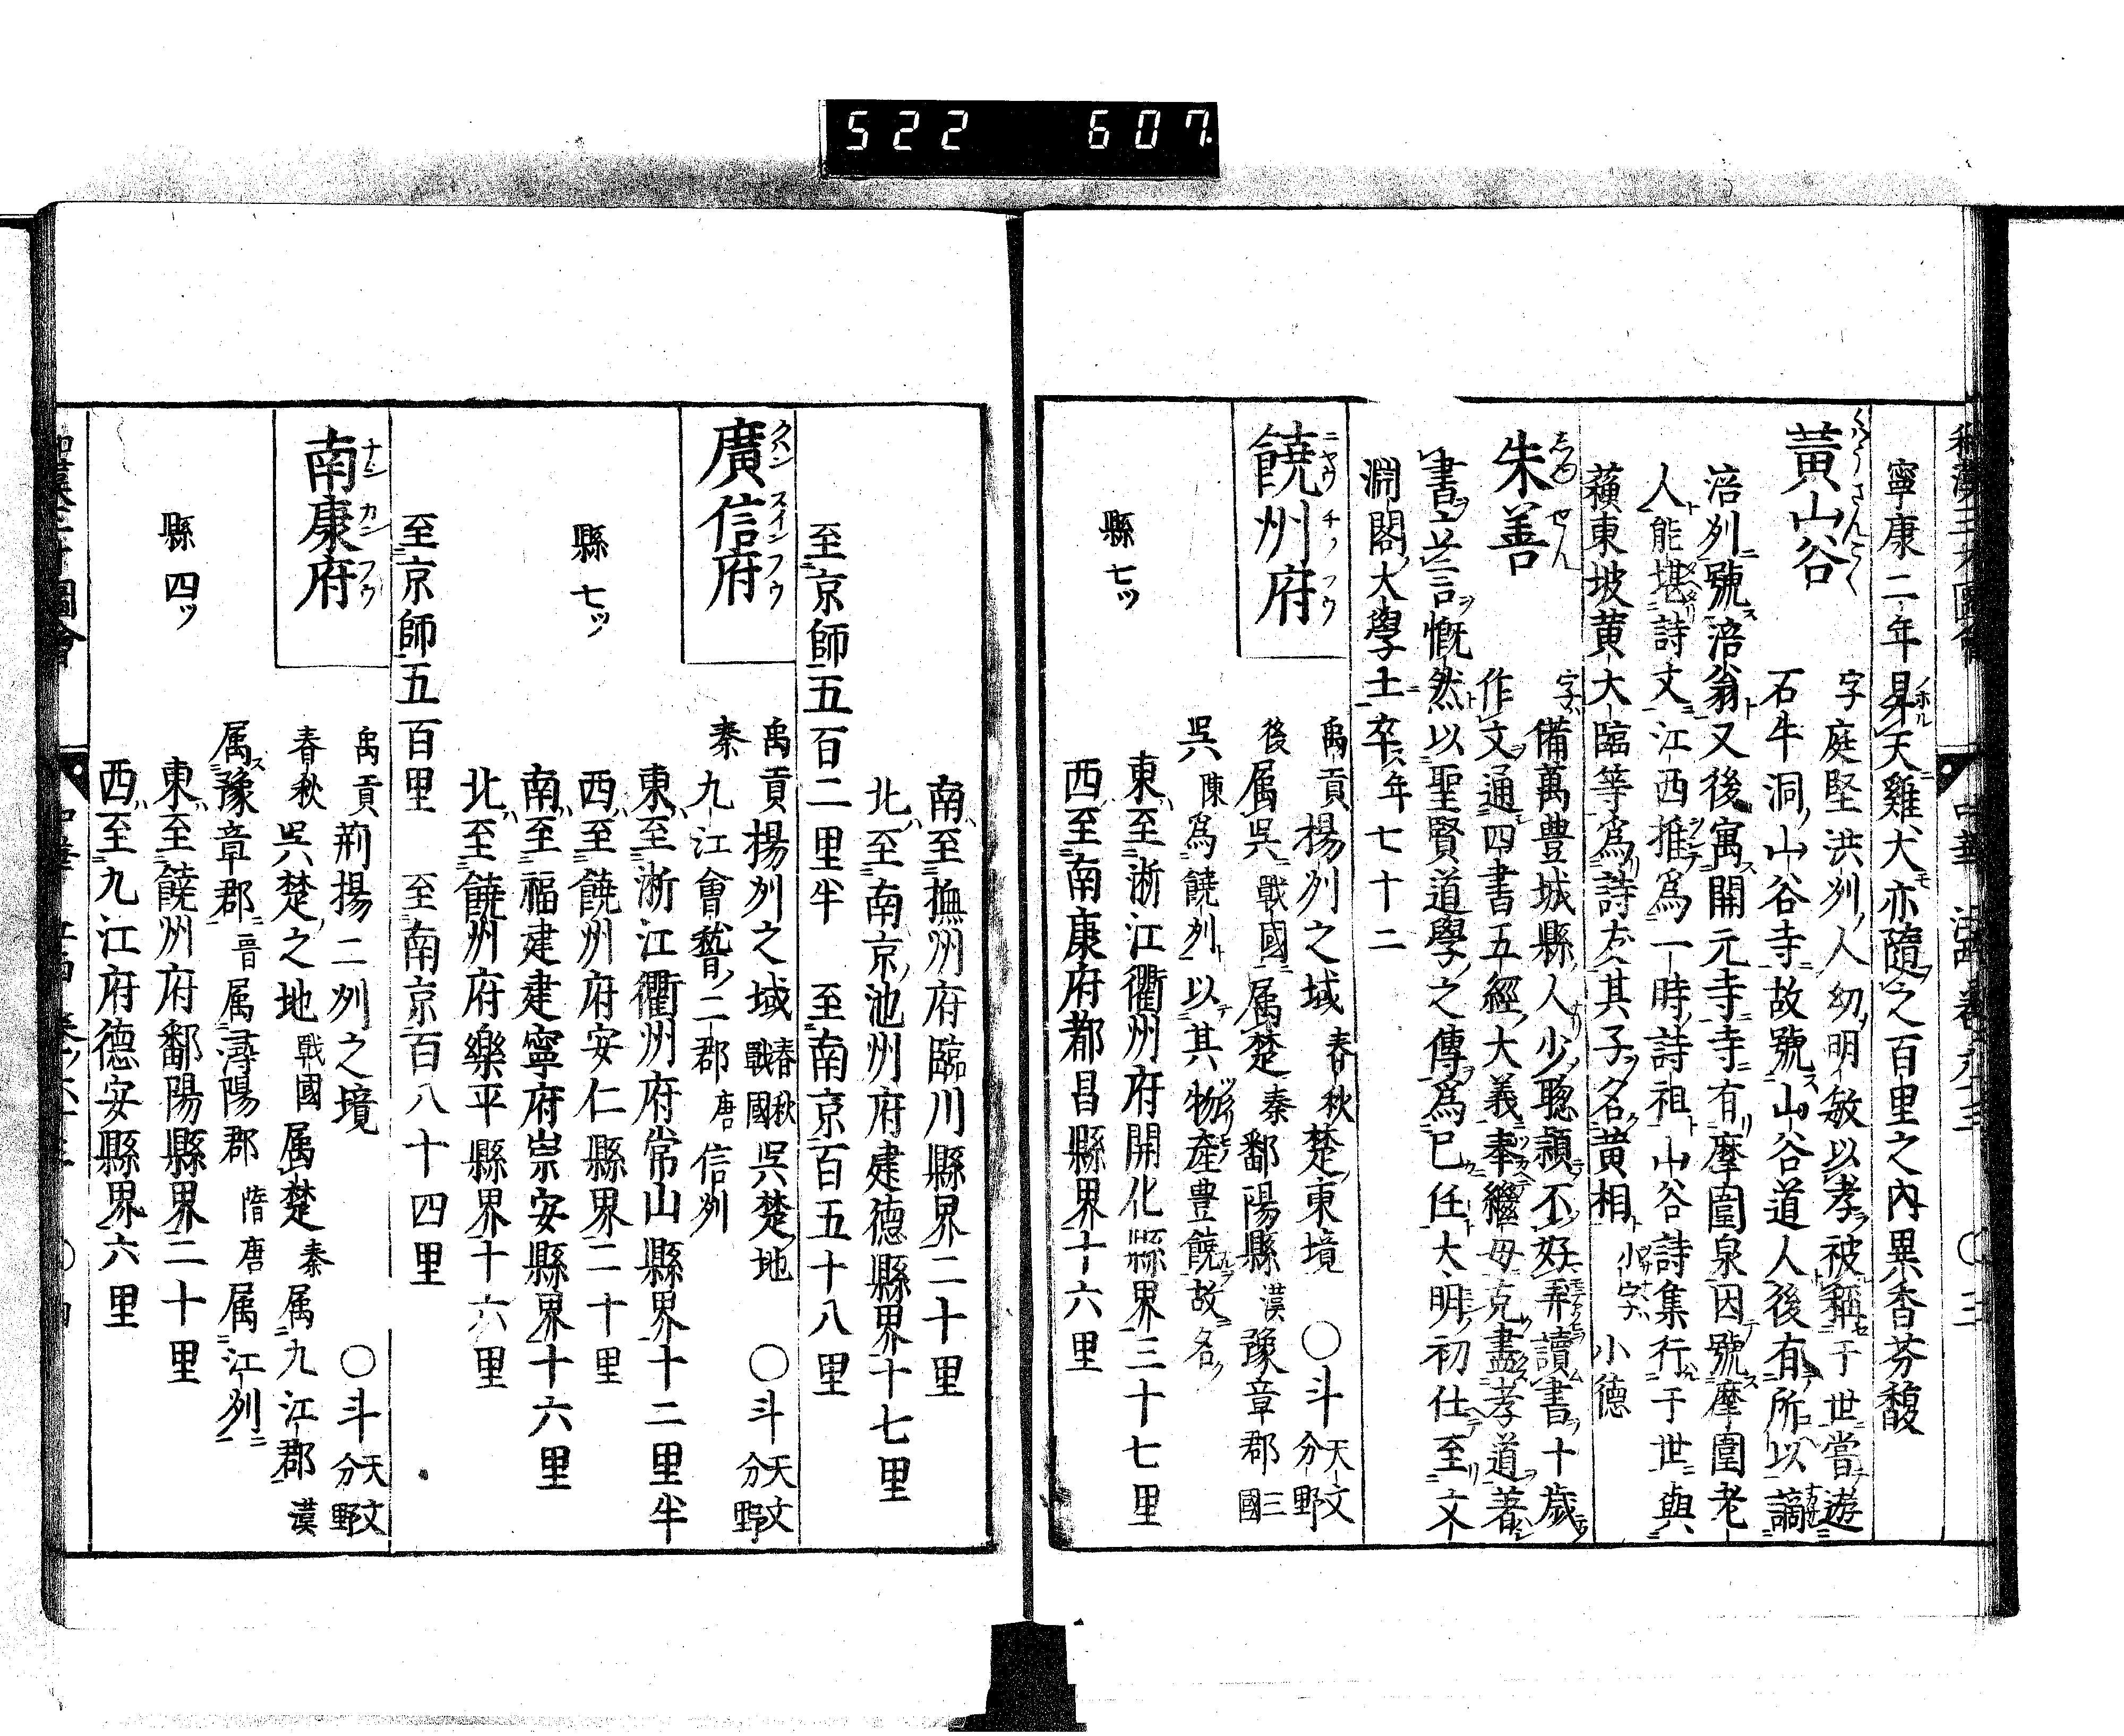 522 607
寧康二年昇天雞犬亦隨之百里之內異香芬馥
黃山谷 字庭堅洪刕人幼明敏以孝被稱于世嘗遊
石牛洞山谷寺故號山谷道人後有所以謫
涪刕號涪翁又後寓開元寺寺有摩圍泉因號摩圍老
人能堪詩文江西推爲一時詩祖山谷詩集行于世與
蘓東坡黄大臨等爲詩友其子名黄相小字小德
朱善 字備萬豊城縣人少聰穎不好弄讀書十歳
作文通四書五經大義奉繼母克盡孝道著
書立言慨然以聖賢道學之傳爲已任大明初仕至文
淵閣大學士卒年七十二
饒州府 禹貢揚刕之域 春秋楚東境 ○斗 天文分野
後属呉 戰國属楚 秦鄱陽縣 漢豫章郡 三國
呉 陳爲饒刕以其物產豊饒故名
縣七ツ 東至淅江衢州府開化縣界三十七里
西至南康府都昌縣界十六里
南至撫州府臨川縣界二十里
北至南京池州府建德縣界十七里
至京師五百二里半 至南京百五十八里
廣信府 禹貢揚刕之域 春秋戰國呉楚地 ○斗 天文分野
秦九江會稽二郡 唐信刕
縣七ツ 東至淅江衢州府常山縣界十二里半
西至饒州府安仁縣界二十里
南至福建建寧府崇安縣界十六里
北至饒州府樂平縣界十六里
至京師五百里 至南京百八十四里
南康府 禹貢荊揚二刕之境 ○斗 天文分野
春秋呉楚之地 戰國属楚 秦属九江郡 漢
属豫章郡 晋属潯陽郡 隋唐属江刕
縣四ツ 東至饒州府鄱陽縣界二十里
西至九江府德安縣界六里